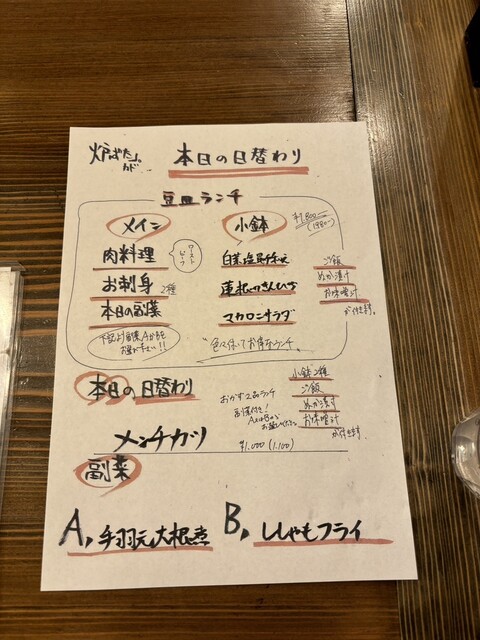 炉ばた
本日の日替わり
豆皿ランチ
メイン
肉料理
ローストビーフ
お刺身 2種
本日の副菜
小鉢
¥1,800-
白菜塩昆布和え
蓮根のきんぴら
マカロニサラダ
ご飯
ぬか漬け
お味噌汁
が付きます。
色々食べてお得なランチ
本日の日替わり
メンチカツ
おかず2品ランチ
副菜付き!
¥1,000 (1,100)
小鉢2種
ご飯
ぬか漬け
お味噌汁
が付きます。
副菜
A, 手羽元大根煮
B, ししゃもフライ